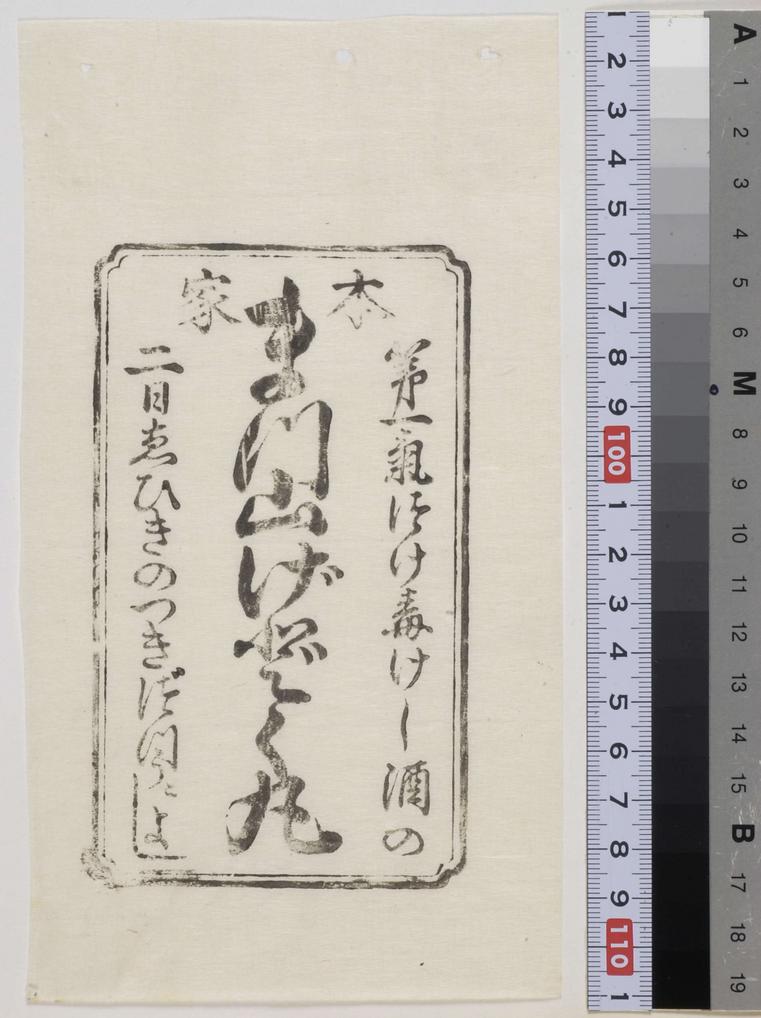 本家
第一氣つけ毒けし酒の
ま門山げどく丸
二日ゑひきのつき
1 2 3 4 5 6 7 8 9 100 1 2 3 4 5 6 7 8 9 110 1
A 1 2 3 4 5 6 M 8 9 10 11 12 13 14 15 B 17 18 19